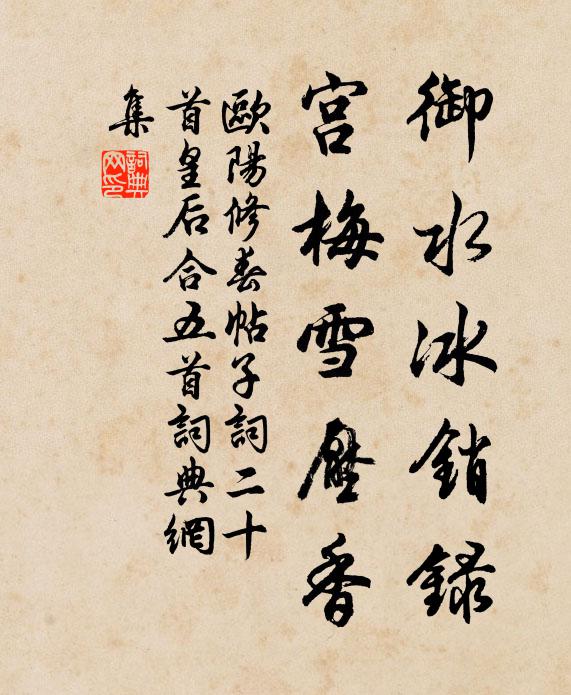 御水冰銷録
宮梅雪壓香
歐陽修春帖子詞二十
首皇后合五首詞典網
集
詞典網印